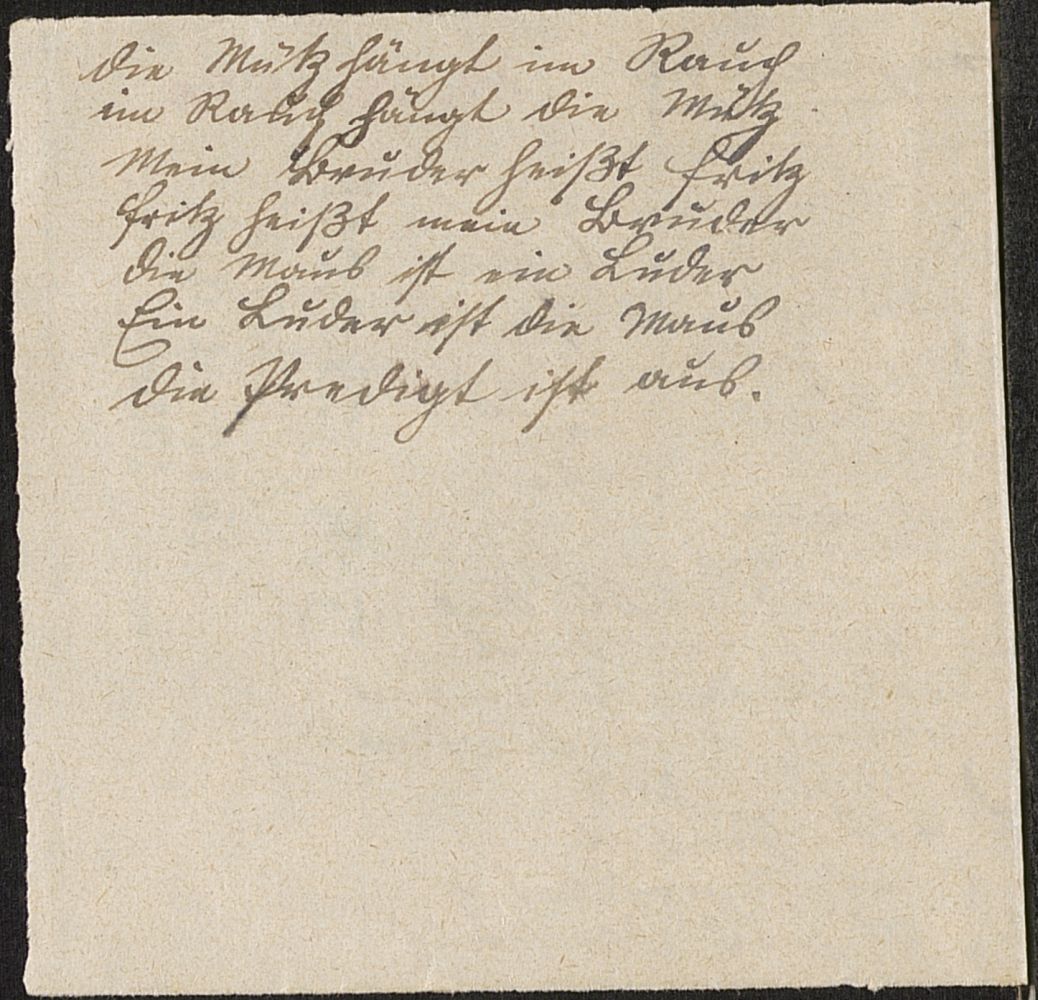 die Mütz hängt im Rauch
im Rauch hängt die Mütz
Mein Bruder heißt Fritz
Fritz heißt mein Bruder
die Maus ist ein Luder
Ein Luder ist die Maus
die Predigt ist aus.